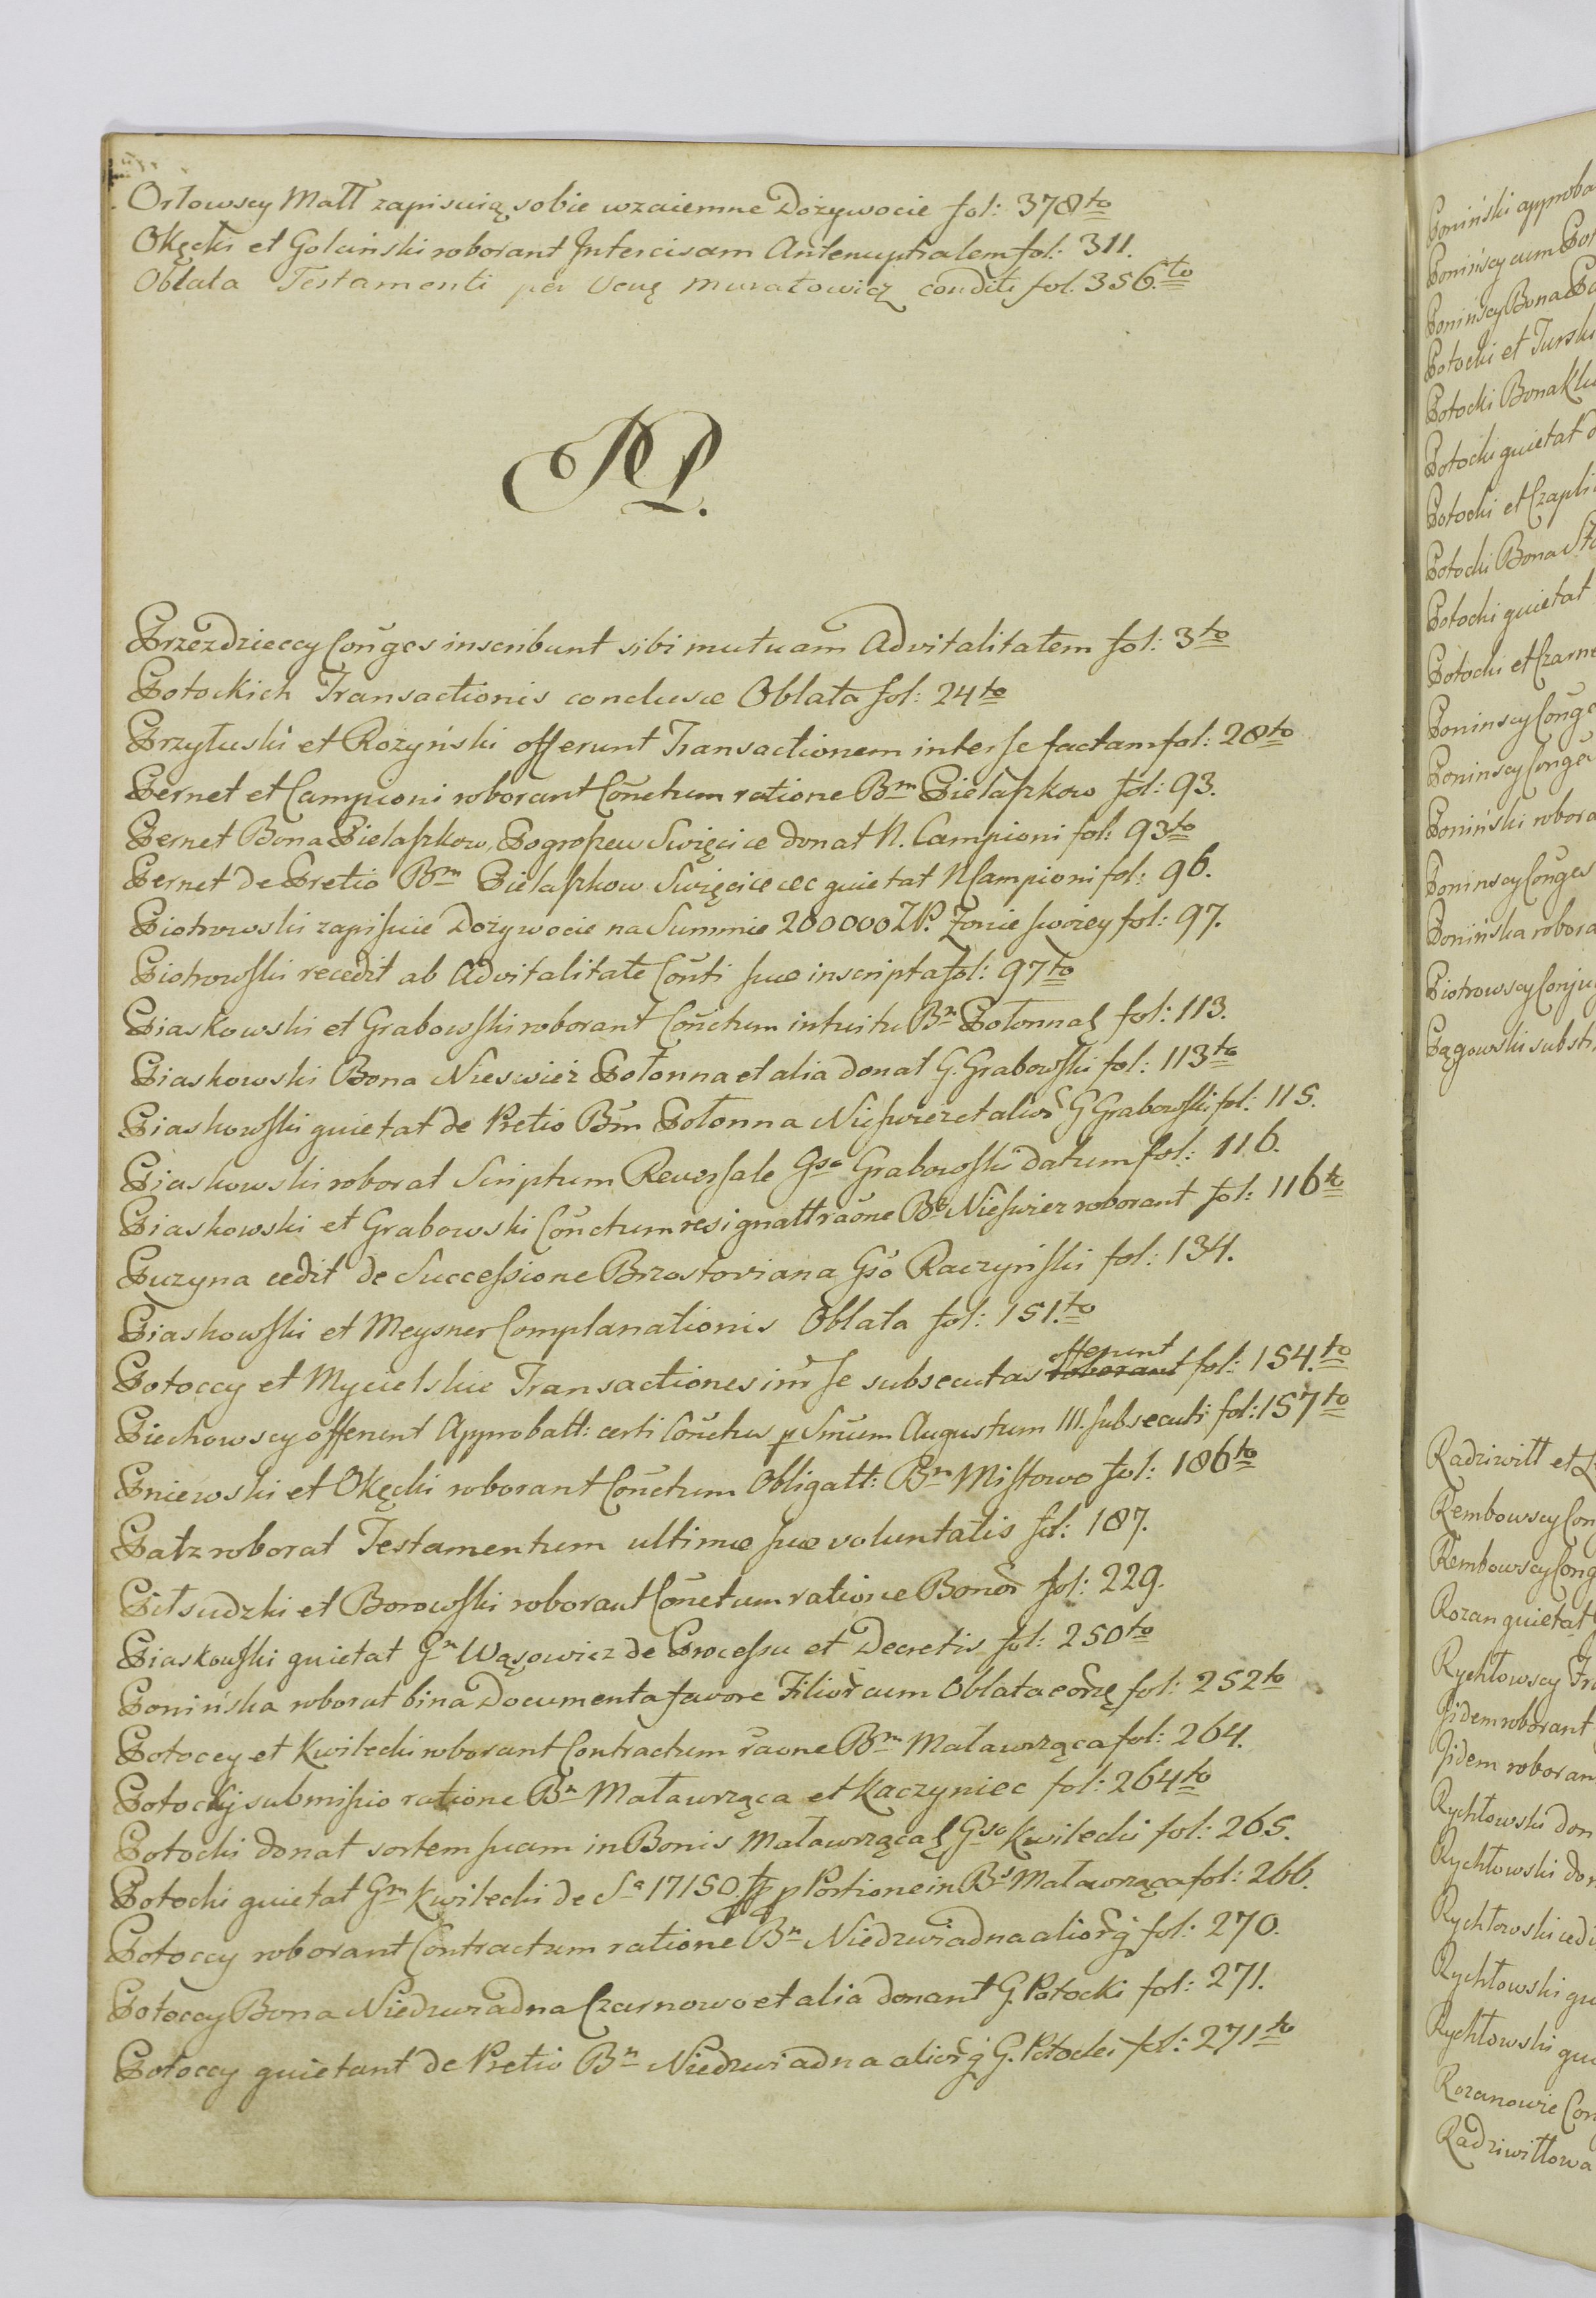 Orłowscy Małł zapisuią sobie wzaiemne Dożywocie fol: 378to
Okęcki et Golciński roborant Intercisam Antenuptialem fol: 311.
Oblata Testamenti per Ucuę Muratowicz conditi fol. 356.to
P.
Przezdzieccy Conges inscribunt sibi mutuam Advitalitatem fol: 3to
Potockich Transactionis conclusæ Oblata fol: 24to
Przyłuski et Rożyński offerunt Transactionem inter se factam fol: 28to
Pernet et Campioni roborant Conctum ratione Bm Pielaszkow fol: 93.
Pernet Bona Pielaszkow, Pogroszew Swięcice donat N. Campioni fol: 93to
Pernet de Pretio Bm Pielaszkow Swięcice cec quietat N Campioni fol: 96.
Piotrowski zapisuie Dożywocie na Summie 200000 ZP. Zonie swoiey fol: 97.
Piotrowski recedit ab Advitalitate Conti suæ inscripta fol: 97to
Piaskowski et Grabowski roborant Conctum intuitu Bn Połonnaę fol: 113.
Piaskowski Bona Nieswież Połonna et alia donat G. Grabowski fol: 113to
Piaskowski quietat de Pretio Bm Połonna Nieswiez et alior G Grabowski fol: 115.
Piaskowski roborat Scriptum Reversale Gso Grabowski datum fol: 116.
Piaskowski et Grabowski Conctum resignatt raone Bo Nieswiez roborant fol: 116to
Puzyna cedit de Successione Brzostoviana Gso Raczyński fol: 134.
Piaskowski et Meysner Complanationis Oblata fol: 151.to
Potoccy et Mycielskie Transactiones inr se subsecutas roborant offerunt fol: 154.to
Piechowscy offerunt Approbatt: certi Conctus p Smum Augustum III. subsecuti fol: 157to
Pniewski et Okęcki roborant Conctum Obligatt: Bn Mistowo fol: 186to
Patz roborat Testamentum ultimæ suæ voluntatis fol: 187.
Piłsudzki et Borowski roborant Conctum ratione Bonor fol: 229.
Piaskowski quietat Gn Wąsowicz de Processu et Decretis fol: 250to
Ponińska roborat bina Documenta favore Filior cum Oblata eorę fol: 252to
Potoccy et Kwilecki roborant Contractum raone Bm Matawrząca fol: 264.
Potockij submissio ratione Bn Matawrząca et Kaczyniec fol: 264to
Potocki donat sortem suam in Bonis Matawrzącaę Gso Kwilecki fol: 265.
Potocki quietat Gm Kwilecki de Sa 17150 p Portione in Bs Matawrząca fol: 266.
Potoccy roborant Contractum ratione Bn Niedzwiadna aliorq fol: 270.
Potoccy Bona Niedzwiadna Czarnowo et alia donant G. Potocki fol: 271.
Potoccy quietant de Pretio Bn Niedzwiadna aliorq G. Potocki fol: 271to
Poniński approba
Ponińscy cum Pot
Ponińscy Bona
Potocki et Turski
Potocki Bona Klu
Potocki quietat
Potocki et Czapli
Potocki Bona
Potocki quietat
Potocki et Czarne
Poninscy Conge
Poninscy Conge
Poniński robora
Poninscy Conges
Ponińska robora
Piotrowscy Conju
Pągowski substi
Radziwiłł et
Rembowscy Con
Rembowscy Cong
Rozan quietat
Rychłowscy Tra
Iidem roborant
Iidem roboran
Rychłowski don
Rychłowski don
Rychłowski cedi
Rychłowski qu
Rychłowski qui
Rozanowie Con
Radziwiłłowa